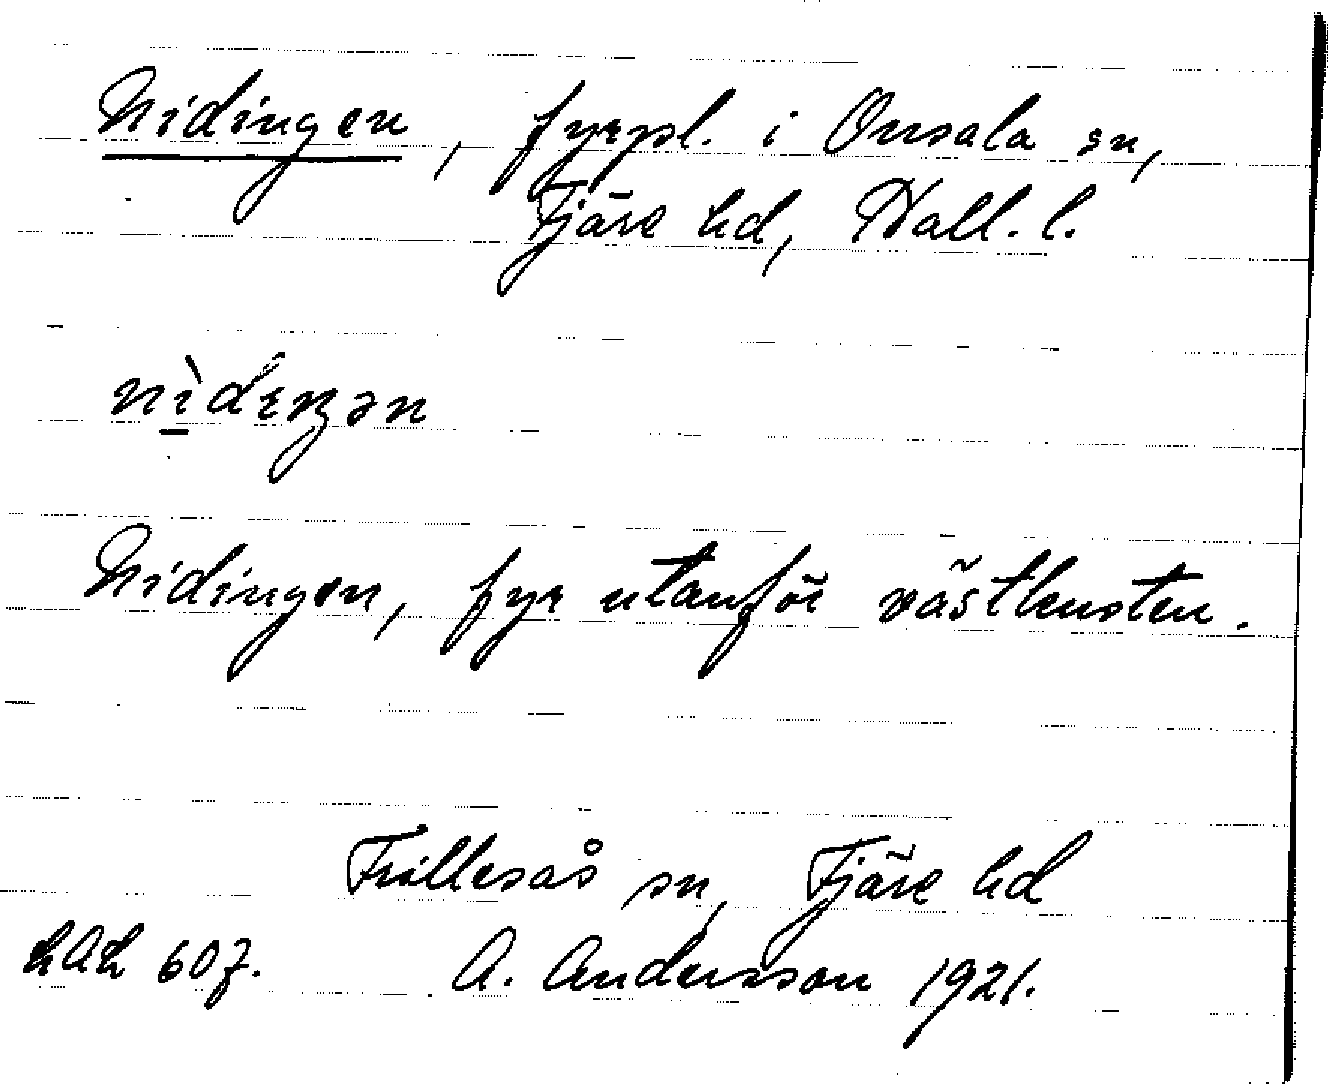 Nidingen, fyrpl. i Onsala sn,
Fjäre hd, Hall. l.
nìdɪŋən
Nidingen, fyr utanför västkusten.
Frillesås sn, Fjäre hd
607. A. Andersson 1921.